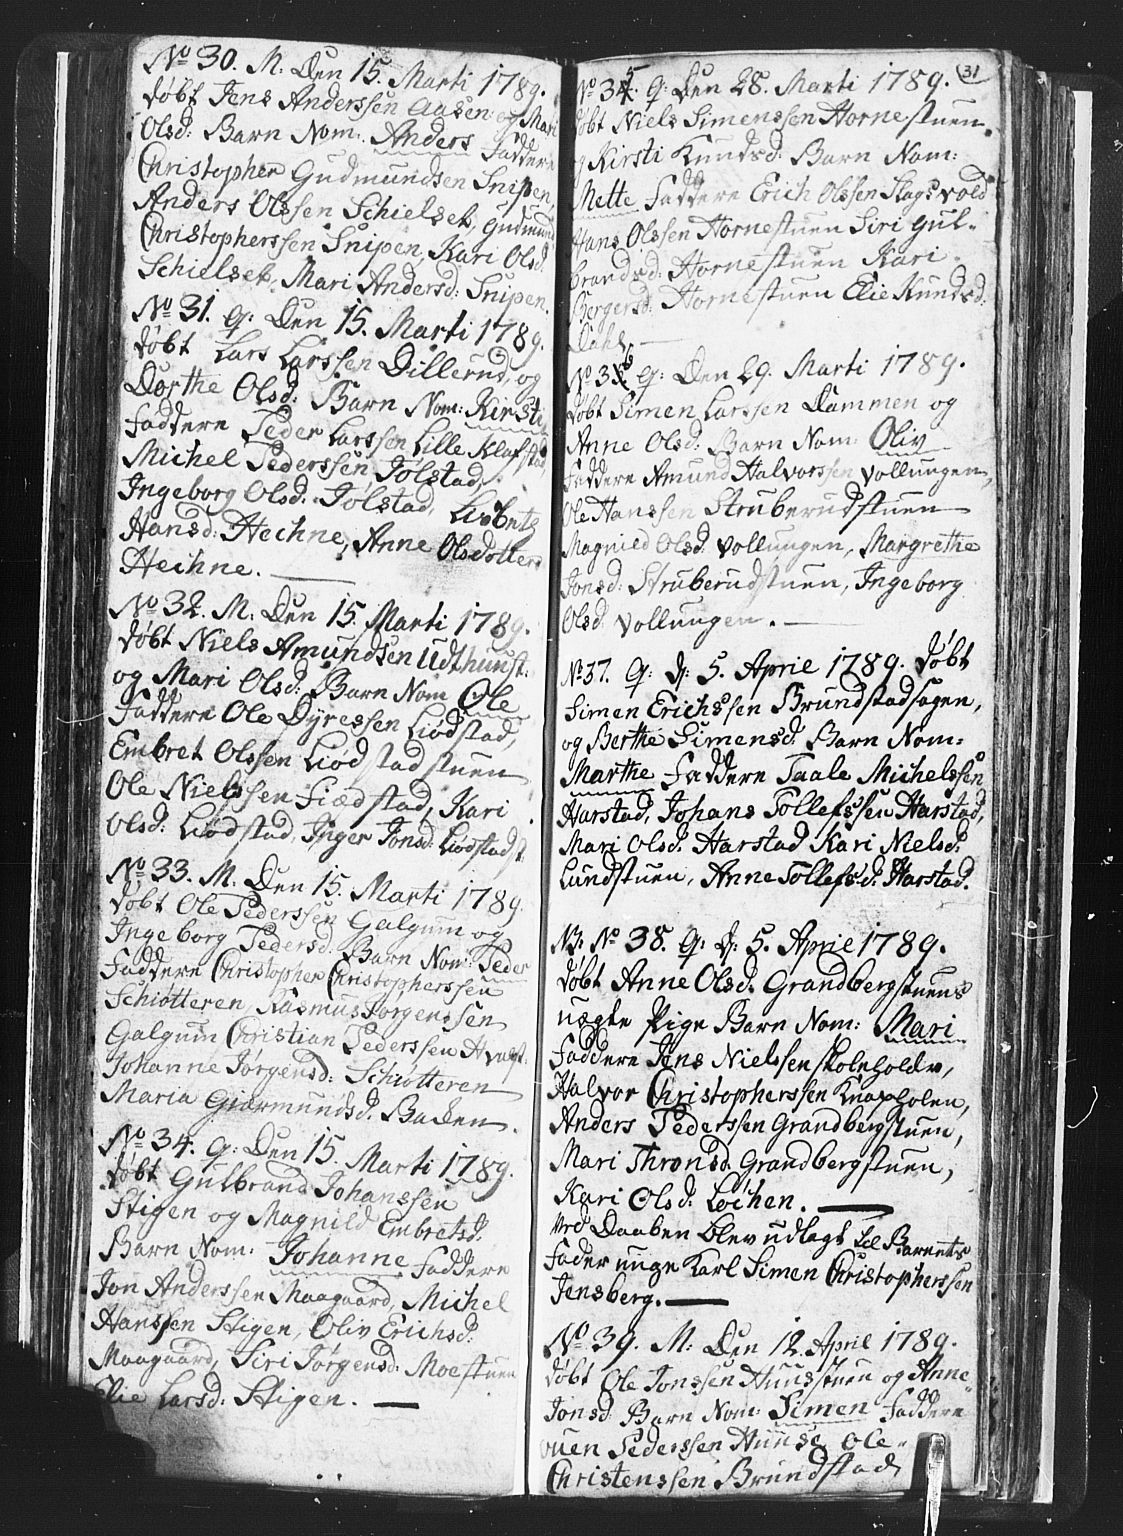 No 30. M: Den 15. Marti 1789.
døbt Jens Anderssen Aasen og Mari
Olsd: Barn Nom: Anders Faddere
Christopher Gudmundsen Snipen,
Anders Olssen Schielset, Gudmund
Christopherssen Snipen, Kari Olsd.
Schielset, Mari Andersd: Snipen.
No 31. Q: Den 15. Marti 1789.
døbt Lars Larssen Dillerud, og
Dorthe Olsd: Barn Nom: Kirsti
Faddere Peder Larssen Lille Klafstad
Michel Pederssen Jølstad,
Ingeborg Olsd: Jølstad, Lisbeth
Hansd: Heihne, Anne Olsdotter
Heihne.
No 32. M: Den 15. Marti 1789.
døbt Niels Amundsen Udthunst:
og Mari Olsd: Barn Nom Ole
Faddere Ole Dyressen Liødstad,
Embret Olssen Liødstadstuen
Ole Nielssen Fiædstad, Kari
Olsd: Liødstad, Inger Jonsd: Liødstadst.
No 33. M: Den 15. Marti 1789.
døbt Ole Pederssen Galgum og
Ingeborg Pedersd. Barn Nom: Peder
Faddere Christopher Christopherssen
Schiøtteren, Rasmus Jørgenssen
Galgum Christian Pederssen Hvalst.
Johanne Jørgensd: Schiøtteren
Maria Giørmundsd. Backen.
No 34. Q: Den 15. Marti 1789.
døbt Gulbrand Johanssen
Stigen og Magnild Embretsd.
Barn Nom: Johanne Faddere
Jon Anderssen Maagaard, Michel
Hanssen Stigen, Oliv Erichsd:
Maagaard, Siri Jørgensd: Moestuen
Elie Larsd: Stigen.
31
No 35. Q: Den 28. Marti 1789.
døbt Niels Simenssen Hornestuen
og Kirsti Knudsd: Barn Nom:
Mette Faddere Erich Olssen Slagsvold
Hans Olssen Hornestuen Siri Gul-
brandsd: Hornestuen Kari
Bergersd: Hornestuen Elie Knudsd:
Dahl
No 36 Q: Den 29. Marti 1789.
døbt Simen Larssen Dammen og
Anne Olsd: Barn Nom: Oliv
Faddere Amund Halvorssen Vollungen,
Ole Hanssen Struberudstuen
Magnild Olsd. Vollungen, Margrethe
Jonsd: Struberudstuen, Ingeborg
Olsd. Vollungen.
No 37. Q: D: 5. April 1789. døbt
Simen Erichssen Brundstadhagen,
og Berthe Simensd. Barn Nom:
Marthe Faddere Taale Michelssen
Harstad, Johans Tollefssen Harstad,
Mari Olsd. Harstad Kari Nielsd:
Lundstuen, Anne Tollefsd. Harstad.
NB: No 38. Q: D: 5. April 1789.
døbt Anne Olsd. Grandbergstuens
uægte Pige Barn Nom: Mari
Faddere Jens Nielssen skoleholder,
Halvor Christopherssen Knapholen,
Anders Pederssen Grandbergstuen,
Mari Thronsd. Grandbergstuen,
Kari Olsd: Løchen.
Ved Daaben blev udlagt til Barnets
Fader unge Karl Simen Christopherssen
Jensberg.
No 39. M: Den 12. April 1789.
døbt Ole Jonssen Hunstuen og Anne
Jonsd. Barn Nom: Simen Faddere
ouen Pederssen Hunse Ole
Christenssen Brundstad